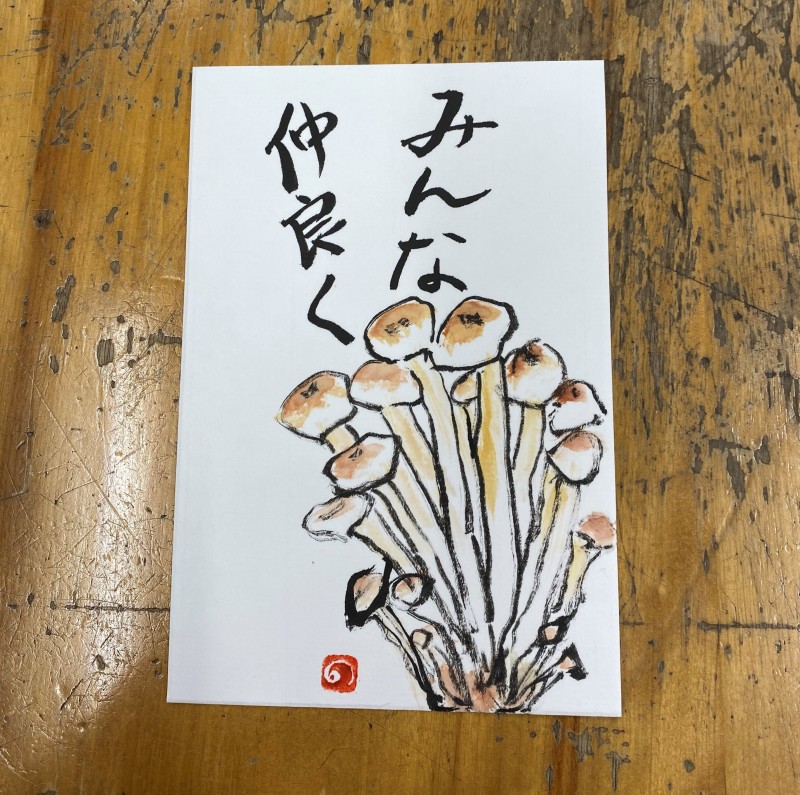 みんな
仲良く